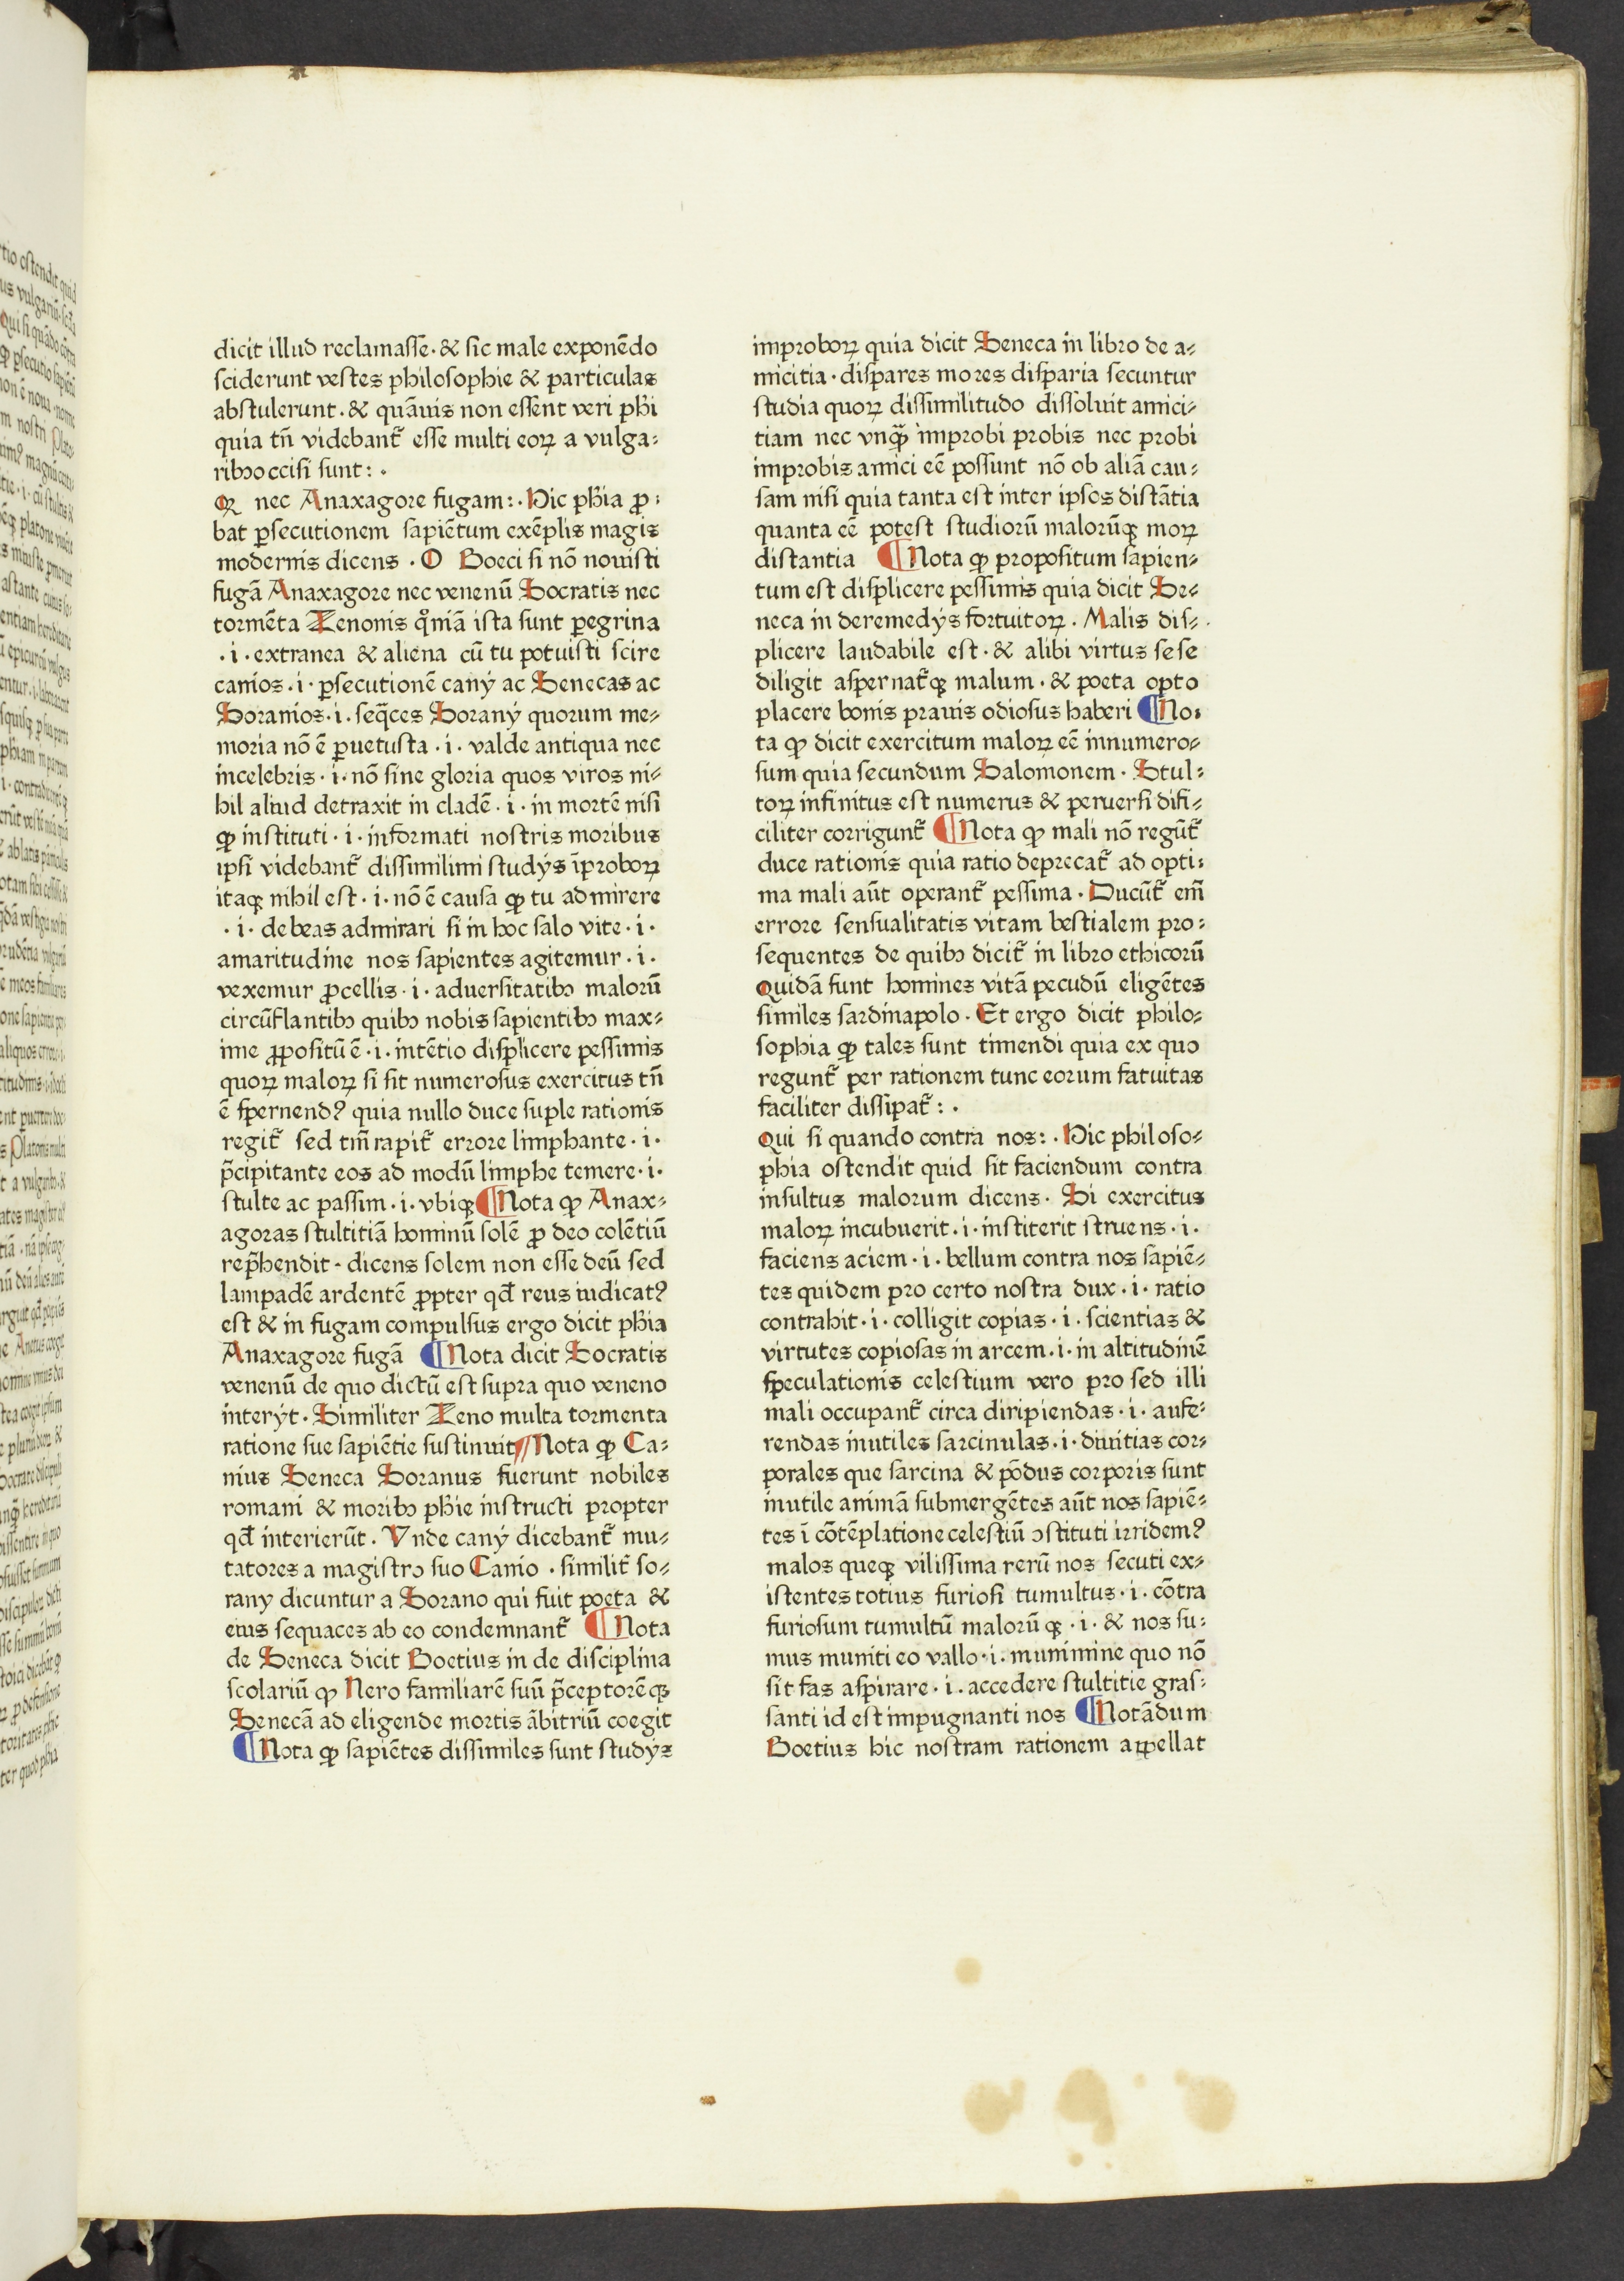 dicit illud reclamasse. & sic male exponēdo
sciderunt vestes philosophie & particulas
abstulerunt. & quāuis non essent veri phi
quia tn̄ videbant᷑ esse multi eoꝝ a vulga-
ribꝰ occisi sunt:.
nec Anaxagore fugam:. Hic phīa ꝓ-
bat ꝑsecutionem sapiētum exēplis magis
modernis dicens . O Boeci si nō nouisti
fugā Anaxagore nec venenū Socratis nec
tormēta Zenonis qm̄iā ista sunt ꝑegrina
.i. extranea & aliena cū tu potuisti scire
canios .i. ꝑsecutionē canÿ ac Senecas ac
Soranios .i. seq̄ces Soranÿ quorum me-
moria nō ē ꝑuetusta .i. valde antiqua nec
incelebris .i. nō sine gloria quos viros ni-
hil aliud detraxit in cladē .i. in mortē nisi
ꝙ instituti .i. informati nostris moribus
ipsi videbant᷑ dissimilimi studÿs īproboꝝ
itaqꝫ nihil est .i. nō ē causa ꝙ tu admirere
.i. debeas admirari si in hoc salo vite .i.
amaritudine nos sapientes agitemur .i.
vexemur ꝓcellis .i. aduersitatibꝰ malorū
circūflantibꝰ quibꝰ nobis sapientibꝰ max-
ime ꝓpositū ē .i. intētio displicere pessimis
quoꝝ maloꝝ si sit numerosus exercitus tn̄
ē spernendꝰ quia nullo duce suple rationis
regit᷑ sed tm̄ rapit᷑ errore limphante .i.
p̄cipitante eos ad modū limphe temere .i.
stulte ac passim .i. vbiqꝫ ¶Nota ꝙ Anax-
agoras stultitiā hominū solē ꝓ deo colētiū
rep̄hendit . dicens solem non esse deū sed
lampadē ardentē ꝓpter qd̄ reus iudicatꝰ
est & in fugam compulsus ergo dicit phīa
Anaxagore fugā ¶Nota dicit Socratis
venenū de quo dictū est supra quo veneno
interÿt . Similiter Zeno multa tormenta
ratione sue sapiētie sustinuit ¶Nota ꝙ Ca-
nius Seneca Soranus fuerunt nobiles
romani & moribꝰ phīe instructi propter
qd̄ interierūt . Vnde canÿ dicebant᷑ mu-
tatores a magistro suo Canio . similit᷑ so-
rany dicuntur a Sorano qui fuit poeta &
eius sequaces ab eo condemnant᷑ ¶Nota
de Seneca dicit Boetius in de disciplina
scolariū ꝙ Nero familiarē suū p̄ceptorēqꝫ
Senecā ad eligende mortis ābitriū coegit
¶Nota ꝙ sapiētes dissimiles sunt studÿs
improboꝝ quia dicit Seneca in libro de a-
micitia . dispares mores disparia secuntur
studia quoꝝ dissimilitudo dissoluit amici-
tiam nec vnqꝫ̄ improbi probis nec probi
improbis amici eē possunt nō ob aliā cau-
sam nisi quia tanta est inter ipsos distātia
quanta eē potest studiorū malorūqꝫ moꝝ
distantia ¶Nota ꝙ propositum sapien-
tum est displicere pessimis quia dicit Se-
neca in deremedÿs fortuitoꝝ . Malis dis-
plicere laudabile est . & alibi virtus sese
diligit aspernat᷑qꝫ malum . & poeta opto
placere bonis prauis odiosus haberi ¶No-
ta ꝙ dicit exercitum maloꝝ eē innumero-
sum quia secundum Salomonem . Stul-
toꝝ infinitus est numerus & peruersi difi-
ciliter corrigunt᷑ ¶Nota ꝙ mali nō regūt᷑
duce rationis quia ratio deprecat᷑ ad opti-
ma mali aūt operant᷑ pessima . Ducūt᷑ em̄
errore sensualitatis vitam bestialem pro-
sequentes de quibꝰ dicit᷑ in libro ethicorū
Quidā sunt homines vitā pecudū eligētes
similes sardinapolo . Et ergo dicit philo-
sophia ꝙ tales sunt timendi quia ex quo
regunt᷑ per rationem tunc eorum fatuitas
faciliter dissipat᷑ :.
Qui si quando contra nos:. Hic philoso-
phia ostendit quid sit faciendum contra
insultus malorum dicens . Si exercitus
maloꝝ incubuerit .i. institerit struens .i.
faciens aciem .i. bellum contra nos sapiē-
tes quidem pro certo nostra dux .i. ratio
contrahit .i. colligit copias .i. scientias &
virtutes copiosas in arcem .i. in altitudinē
speculationis celestium vero pro sed illi
mali occupant᷑ circa diripiendas .i. aufe-
rendas inutiles sarcinulas .i. diuitias cor-
porales que sarcina & pōdus corporis sunt
inutile animā submergētes aūt nos sapiē-
tes ī cōtēplatione celestiū ꝯstituti irridemꝰ
malos queqꝫ vilissima rerū nos secuti ex-
istentes totius furiosi tumultus .i. cōtra
furiosum tumultū malorū qꝫ .i. & nos su-
mus muniti eo vallo .i. munimine quo nō
sit fas aspirare .i. accedere stultitie gras-
santi id est impugnanti nos ¶Notādum
Boetius hic nostram rationem appellat